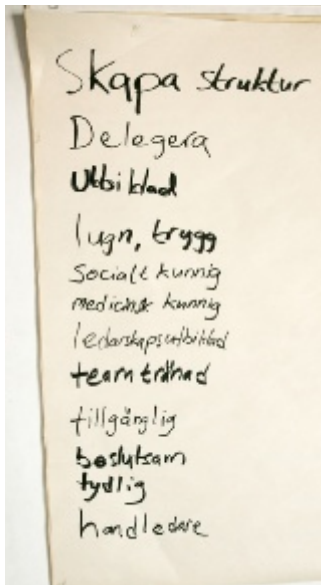 Skapa struktur
Delegera
Utbildad
lugn, trygg
Socialt kunnig
medicinsk kunnig
ledarskapsutbildad
teamtränad
tillgänglig
beslutsam
tydlig
handledare